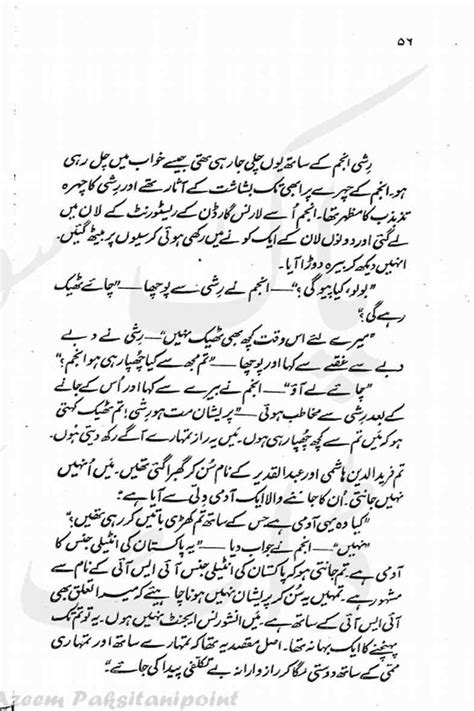 ۵۶
رشی انجم کے ساتھ یوں چلی جا رہی تھی جیسے خواب میں چل رہی
ہو۔ انجم کے چہرے پر ابھی تک بشاشت کے آثار تھے اور رشی کا چہرہ
تذبذب کا مظہر تھا۔ انجم اُسے لارنس گارڈن کے ریسٹورنٹ کے لان میں
لے گئی اور دونوں لان کے ایک کونے میں رکھی ہوئی کرسیوں پر بیٹھ گئیں۔
انہیں دیکھ کر بیرہ دوڑا آیا۔
"بولو، کیا پیو گی؟" — انجم نے رشی سے پوچھا — "چائے ٹھیک
رہے گی؟"
"میرے لئے اس وقت کچھ بھی ٹھیک نہیں" — رشی نے دبے
دبے سے غصے سے کہا اور پوچھا — "تم مجھ سے کیا چھپا رہی ہو انجم؟"
"چائے لے آؤ" — انجم نے بیرے سے کہا اور اُس کے جانے
کے بعد رشی سے مخاطب ہوئی — "پریشان مت ہو رشی! تم ٹھیک کہتی
ہو کہ میں تم سے کچھ چھپا رہی ہوں۔ میں یہ راز تمہارے آگے رکھ دیتی ہوں۔
تم فریدالدین ہاشمی اور عبدالقدیر کے نام سُن کر گھبرا گئی تھیں۔ میں اُنہیں
نہیں جانتی۔ اُن کا جاننے والا ایک آدمی دِلّی سے آیا ہے۔"
"کیا وہ یہی آدمی ہے جس کے ساتھ تم کھڑی باتیں کر رہی تھیں؟"
"نہیں" — انجم نے جواب دیا — "یہ پاکستان کی انٹیلی جنس کا
آدمی ہے۔ تم جانتی ہو کہ پاکستان کی انٹیلی جنس آئی ایس آئی کے نام سے
مشہور ہے۔ تمہیں یہ سُن کر پریشان نہیں ہونا چاہیئے کہ میرا تعلق بھی
آئی ایس آئی کے ساتھ ہے۔ میں انشورنس ایجنٹ نہیں ہوں۔ یہ تو تم تک
پہنچنے کا ایک بہانہ تھا۔ اصل مقصد یہ تھا کہ تمہارے ساتھ اور تمہاری
ممی کے ساتھ دوستی مگر راز دارانہ بے تکلفی پیدا کی جائے۔"
Azeem Paksitanipoint